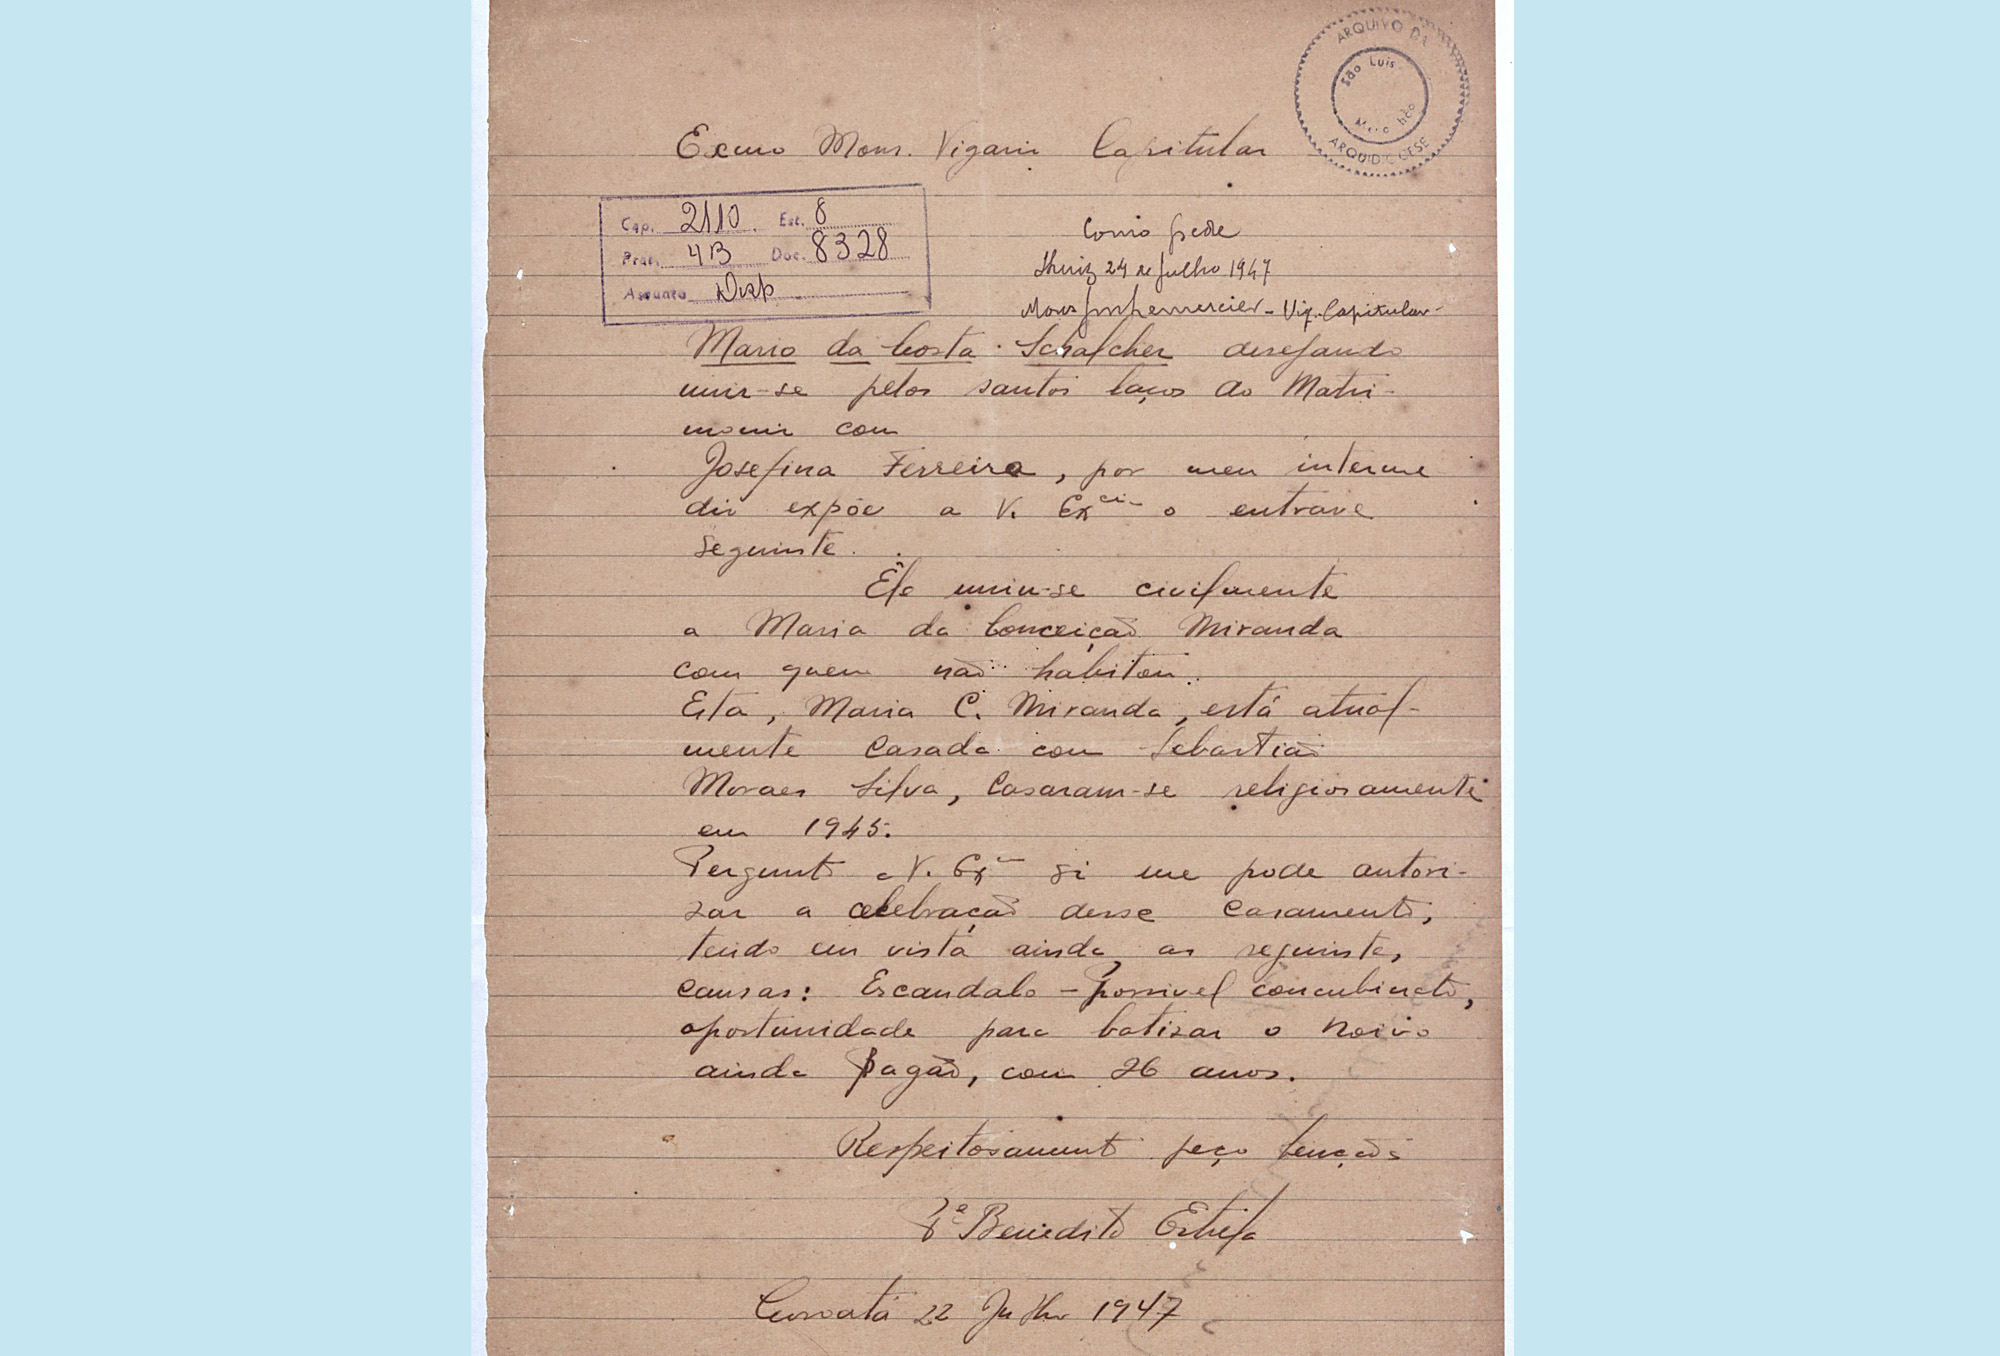 ARQUIVO DA
ARQUIDIOCESE
São Luis
Maranhão
Exmo Mons. Vigario Capitular
Cap. 2110. Est. 8
Prat. 4B Doc. 8328
Assunto Disp
Como pede
24 de Julho 1947
Mons Vig. Capitular
Mario da Costa Schalcher desejando
unir-se pelos santos laços do Matri-
monio com
Josefina Ferreira, por meu interme
dio expõe a V. Excia o entrave
seguinte.
Êle uniu-se civilmente
a Maria da Conceição Miranda
com quem não habitou.
Esta, Maria C. Miranda, está atual-
mente casada com Sebastião
Moraes Silva, Casaram-se religiosamente
em 1945.
Pergunto a V. Exa si me pode autori-
zar a celebração desse casamento,
tendo em vista ainda, as seguintes,
causas: Escandalo - possivel concubinato,
oportunidade para batizar o noivo
ainda pagão, com 26 anos.
Respeitosamente peço bençãos
Pe Benedito Estrela
Coroatá 22 Julho 1947